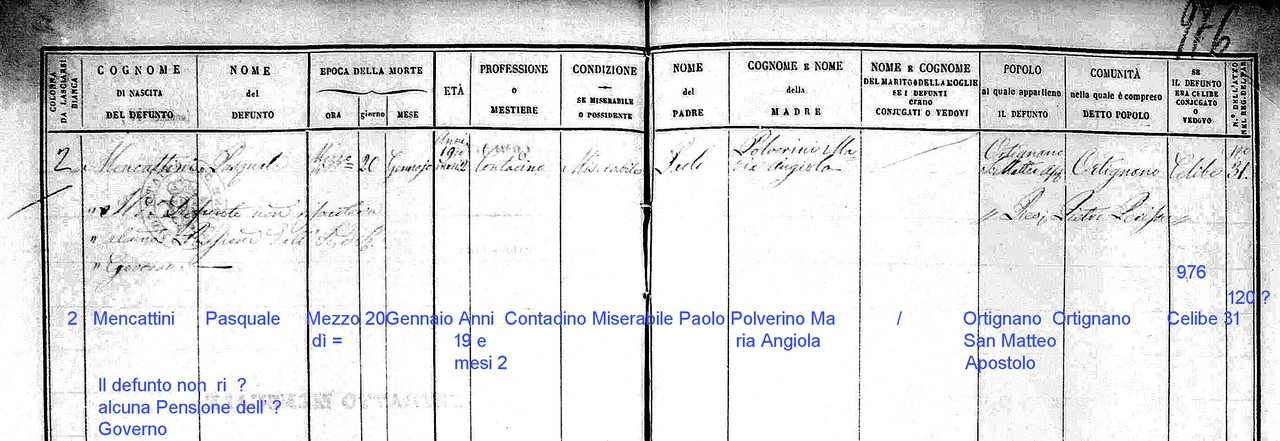 976
COLONNA DA LASCIARSI BIANCA
COGNOME DI NASCITA DEL DEFUNTO
NOME del DEFUNTO
EPOCA DELLA MORTE
ORA giorno MESE
ETÀ
PROFESSIONE O MESTIERE
CONDIZIONE SE MISERABILE O POSSIDENTE
NOME del PADRE
COGNOME E NOME della MADRE
NOME E COGNOME DEL MARITO O DELLA MOGLIE SE I DEFUNTI erano CONJUGATI O VEDOVI
POPOLO al quale appartiene IL DEFUNTO
COMUNITÀ nella quale è compreso DETTO POPOLO
SE IL DEFUNTO ERA CELIBE CONJUGATO O VEDOVO
N.º DELL'ATTO NEL REG. DEL PAR.
2 Mencattini Pasquale Mezzo 20 Gennajo Anni 19 e mesi 2 Contadino Miserabile Paolo Polverini Ma Ortignano Ortignano Celibe 31.
ria Angiola
Il Defunto non
alcuna Pensione
Governo
976
120 ?
2 Mencattini Pasquale Mezzo 20 Gennaio Anni Contadino Miserabile Paolo Polverino Ma / Ortignano Ortignano Celibe 31
dì = 19 e ria Angiola San Matteo
mesi 2 Apostolo
Il defunto non ri ?
alcuna Pensione dell' ?
Governo